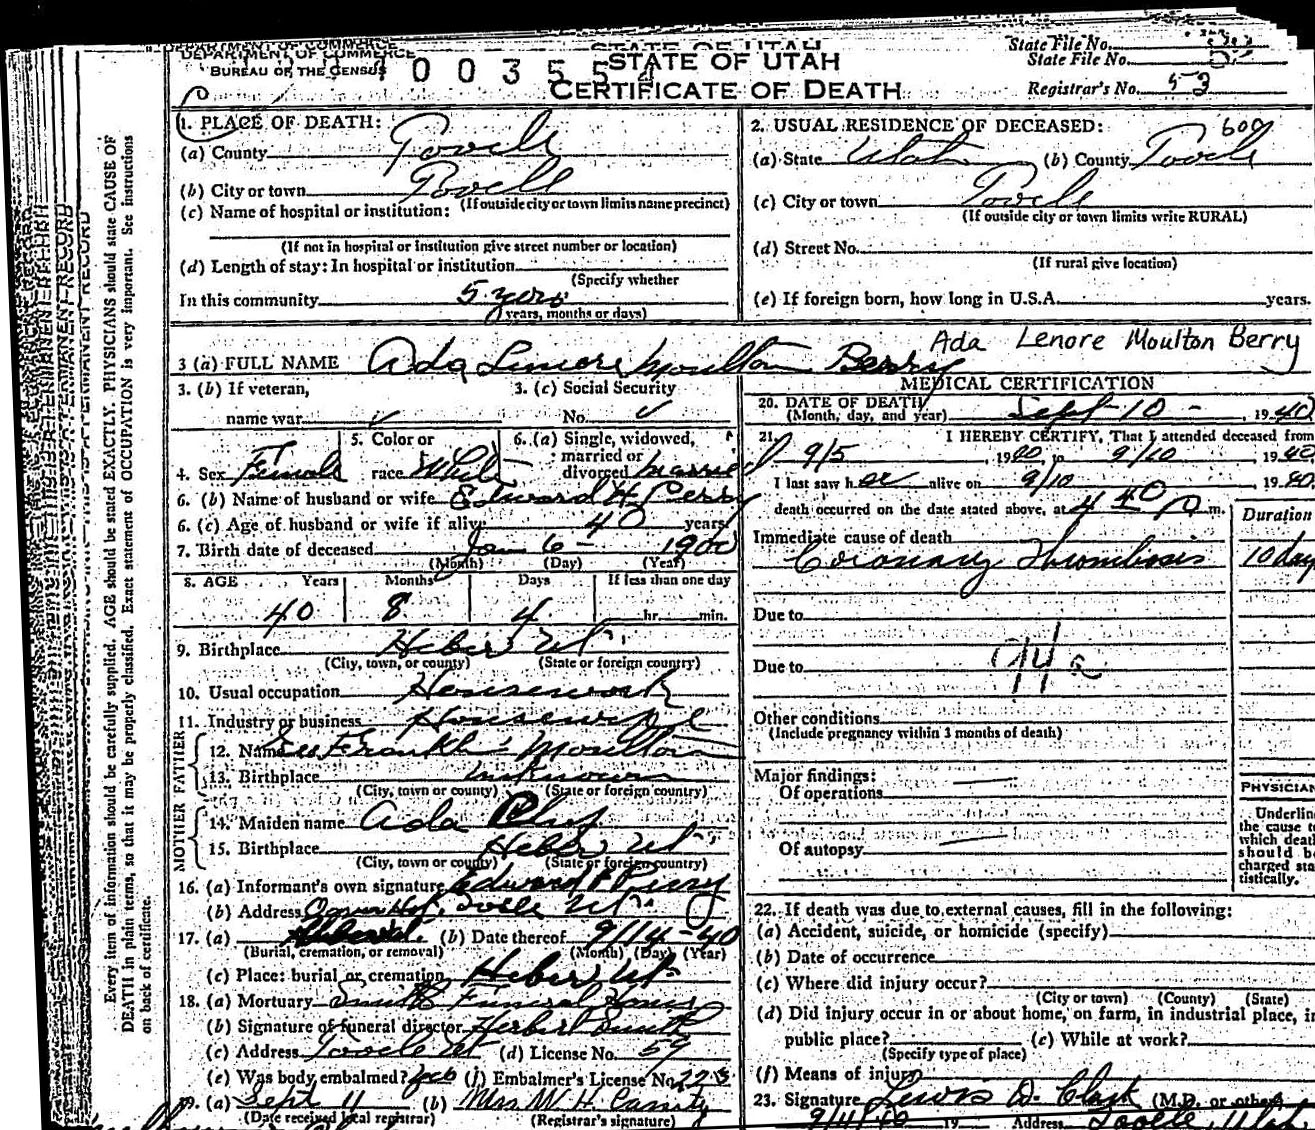 DEPARTMENT OF COMMERCE
BUREAU OF THE CENSUS
STATE OF UTAH
CERTIFICATE OF DEATH
State File No.
State File No.
Registrar's No. 53
1. PLACE OF DEATH:
(a) County Tooele
(b) City or town Tooele
(If outside city or town limits name precinct)
(c) Name of hospital or institution:
(If not in hospital or institution give street number or location)
(d) Length of stay: In hospital or institution
(Specify whether
In this community 5 yers
years, months or days)
2. USUAL RESIDENCE OF DECEASED:
(a) State Utah (b) County Tooele
(c) City or town Tooele
(If outside city or town limits write RURAL)
(d) Street No.
(If rural give location)
(e) If foreign born, how long in U.S.A. years.
3 (a) FULL NAME Ada Lenore Moulton Berry
Ada Lenore Moulton Berry
3. (b) If veteran, name war
3. (c) Social Security No.
4. Sex Female
5. Color or race White
6. (a) Single, widowed, married or divorced married
6. (b) Name of husband or wife Edward H Perry
6. (c) Age of husband or wife if alive 40 years
7. Birth date of deceased Jan 6 - 1900
(Month) (Day) (Year)
8. AGE Years Months Days If less than one day
40 8 4 hr. min.
9. Birthplace Heber Ut
(City, town, or county) (State or foreign country)
10. Usual occupation Housework
11. Industry or business Housewife
FATHER
12. Name Moulton
13. Birthplace unknown
(City, town or county) (State or foreign country)
MOTHER
14. Maiden name Ada
15. Birthplace Heber Ut
(City, town or county) (State or foreign country)
16. (a) Informant's own signature Edward Perry
(b) Address Tooele Ut
17. (a) (b) Date thereof 9/14-40
(Burial, cremation, or removal) (Month) (Day) (Year)
(c) Place: burial or cremation Heber Ut
18. (a) Mortuary Smith Funeral Home
(b) Signature of funeral director Herbert Smith
(c) Address Tooele Ut (d) License No. 59
(e) Was body embalmed? yes (f) Embalmer's License No. 223
19. (a) Sept 11 (b) Mrs W. H. Cassity
(Date received local registrar) (Registrar's signature)
MEDICAL CERTIFICATION
20. DATE OF DEATH
(Month, day, and year) Sept-10- , 1940
21. I HEREBY CERTIFY, That I attended deceased from
9/5 , 1940, to 9/10 , 1940,
I last saw her alive on 9/10 , 1940,
death occurred on the date stated above, at 4 40 P m.
Duration
Immediate cause of death
Coronary Thrombosis 10 day
Due to
Due to
94a
Other conditions
(Include pregnancy within 3 months of death)
Major findings:
Of operations
Of autopsy
PHYSICIAN
Underlin
the cause to
which death
should be
charged sta
tistically.
22. If death was due to external causes, fill in the following:
(a) Accident, suicide, or homicide (specify)
(b) Date of occurrence
(c) Where did injury occur?
(City or town) (County) (State)
(d) Did injury occur in or about home, on farm, in industrial place, in
public place? (e) While at work?
(Specify type of place)
(f) Means of injury
23. Signature Lewis D. Clark (M.D. or other)
9/11/40 19 Address Tooele, Utah
Every item of information should be carefully supplied. AGE should be stated EXACTLY. PHYSICIANS should state CAUSE OF
DEATH in plain terms, so that it may be properly classified. Exact statement of OCCUPATION is very important. See instructions
on back of certificate.